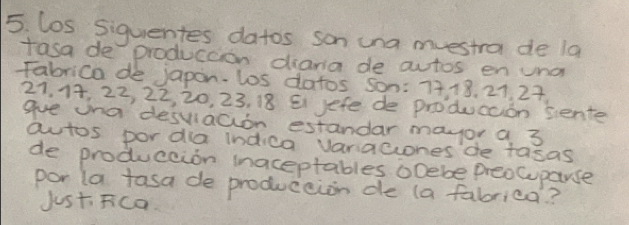 5. Los siguientes datos son una muestra de la
tasa de producción diaria de autos en una
Fabrica de Japon. los datos son: 17,18,21,27,
21,17,22,22,20,23,18 El jefe de producción siente
que una desviación estandar mayor a 3
autos por dia indica variaciones de tasas
de producción inaceptables ¿Debe preocuparse
por la tasa de producción de la fabrica?
JustiFica.